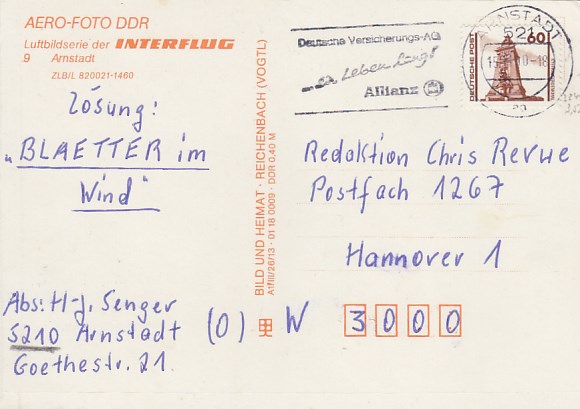 AERO-FOTO DDR
Luftbildserie der INTERFLUG
9 Arnstadt
ZLB/L 820021-1460
Lösung:
„BLAETTER im
Wind"
Abs: H-J. Senger
5210 Arnstadt
Goethestr. 21.
(O)
BILD UND HEIMAT · REICHENBACH (VOGTL)
A1/III/26/13 · 01 18 0009 · DDR 0,40 M
Deutsche Versicherungs-AG
Leben längt
Allianz
ARNSTADT
521
DEUTSCHE POST
60
Redaktion Chris Revue
Postfach 1267
Hannover 1
W 3000